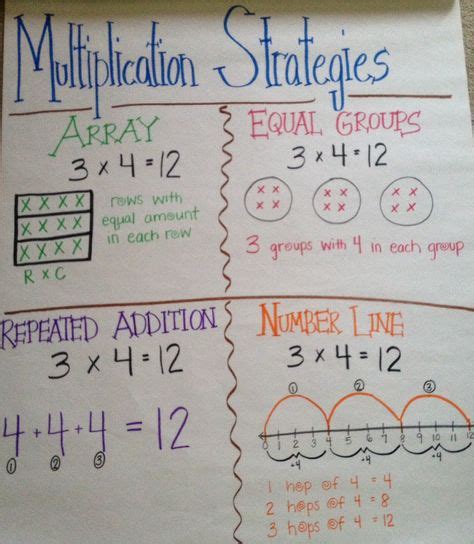 Multiplication Strategies
ARRAY
3 x 4 = 12
X X X X
X X X X
X X X X
rows with
equal amount
in each row
R x C
EQUAL GROUPS
3 x 4 = 12
x x x x x x
x x x x x x
3 groups with 4 in each group
REPEATED ADDITION
3 x 4 = 12
4 + 4 + 4 = 12
① ② ③
NUMBER LINE
3 x 4 = 12
① ② ③
0 1 2 3 4 5 6 7 8 9 10 11 12
+4 +4 +4
1 hop of 4 = 4
2 hops of 4 = 8
3 hops of 4 = 12